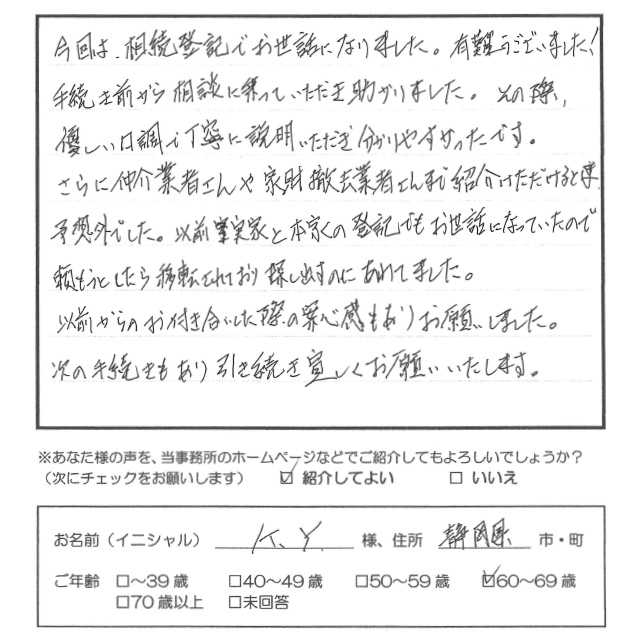 今回は、相続登記でお世話になりました。有難うございました!
手続き前から相談に乗っていただき助かりました。その際、
優しい口調で丁寧に説明いただき分かりやすかったです。
さらに仲介業者さんや家財撤去業者さんまで紹介いただけるとは
予想外でした。以前実家と本家の登記でもお世話になっていたので
頼もうとしたら移転されており探し出すのにあわてました。
以前からのお付き合いした際の安心感もありお願いしました。
次の手続きもあり引き続き宜しくお願いいたします。
※あなた様の声を、当事務所のホームページなどでご紹介してもよろしいでしょうか?
(次にチェックをお願いします) ☑ 紹介してよい □ いいえ
お名前(イニシャル) K.Y. 様、住所 静岡県 市・町
ご年齢 □~39歳 □40~49歳 □50~59歳 ☑60~69歳
□70歳以上 □未回答